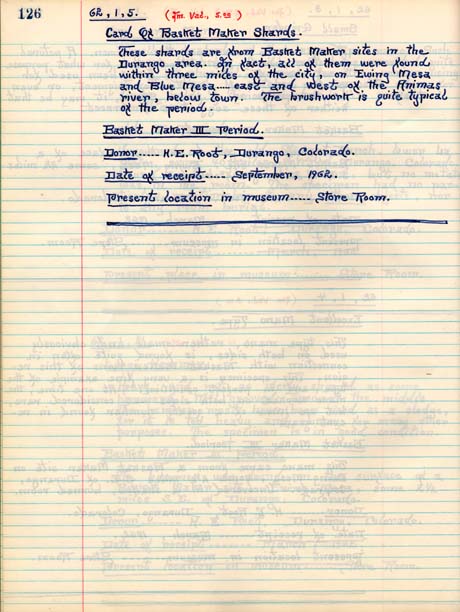 126
62, 1, 5. (Im. Val., 5.00)
Card Of Basket Maker Shards.
These shards are from Basket Maker sites in the
Durango area. In fact, all of them were found
within three miles of the city, on Ewing Mesa
and Blue Mesa.... east and west of the Animas
river, below town. The brushwork is quite typical
of the period.
Basket Maker III Period.
Donor..... H.E. Root, Durango, Colorado.
Date of receipt..... September, 1962.
Present location in museum..... Store Room.